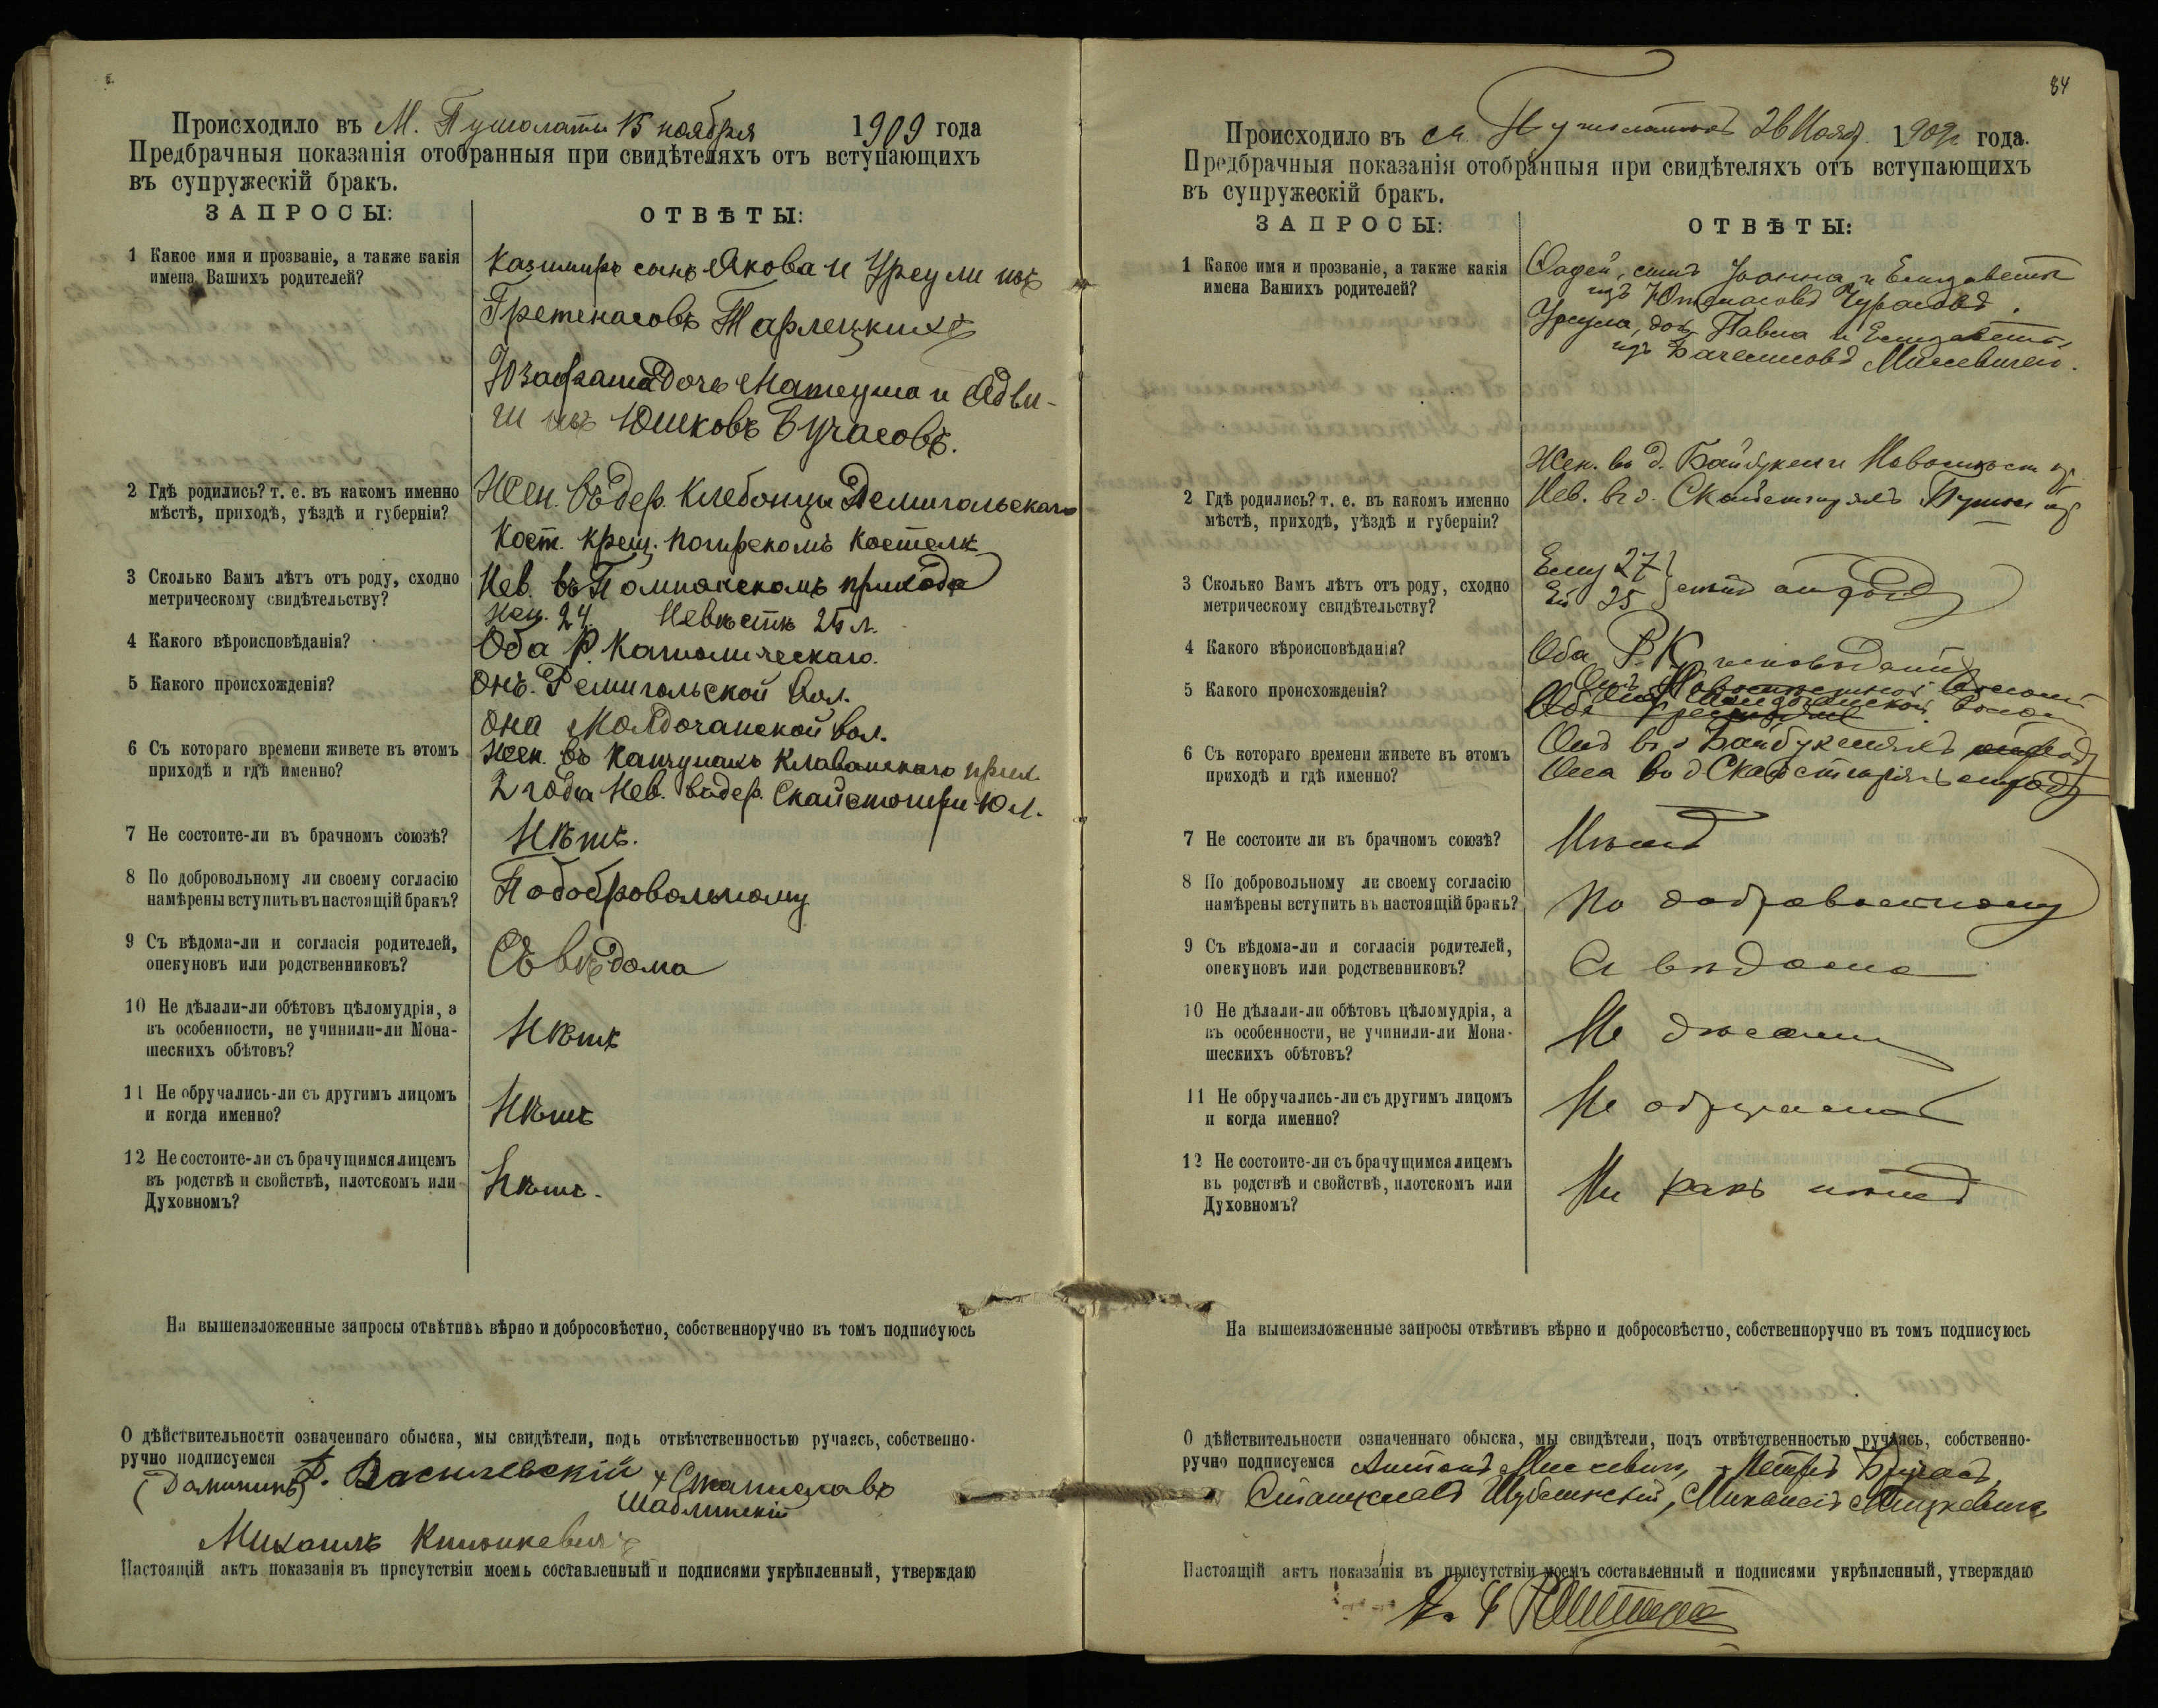 Происходило въ М. Пушолаты 15 ноября 1909 года
Предбрачныя показанія отобранныя при свидѣтеляхъ отъ вступающихъ
въ супружескій бракъ.
ЗАПРОСЫ:
ОТВѢТЫ:
1 Какое имя и прозваніе, а также какія
имена Вашихъ родителей?
Казимиръ сынъ Якова и Урсули изъ
Гретенасовъ Тарлецкихъ
Юзафата дочь Матеуша и Ядви-
ги изъ Юшковъ Бучасовъ.
2 Гдѣ родились? т. е. въ какомъ именно
мѣстѣ, приходѣ, уѣздѣ и губерніи?
Жен. въ дер. Клебонцы Ремигольскаго
Кост. крещ. Погирскомъ костелѣ
Нев. въ Помпянскомъ приходѣ
3 Сколько Вамъ лѣтъ отъ роду, сходно
метрическому свидѣтельству?
Жен. 24. Невѣстѣ 25 л.
4 Какого вѣроисповѣданія?
Оба Р. Католическаго.
5 Какого происхожденія?
Онъ. Ремигольской вол.
она Молдочанской вол.
6 Съ котораго времени живете въ этомъ
приходѣ и гдѣ именно?
Жен. въ Клаванскаго прих.
2 года Нев. въ дер. Скайстогири 10 л.
7 Не состоите-ли въ брачномъ союзѣ?
Нѣтъ.
8 По добровольному ли своему согласію
намѣрены вступить въ настоящій бракъ?
По добровольному
9 Съ вѣдома-ли и согласія родителей,
опекуновъ или родственниковъ?
Съ вѣдома
10 Не дѣлали-ли обѣтовъ цѣломудрія, а
въ особенности, не учинили-ли Мона-
шескихъ обѣтовъ?
Нѣтъ
11 Не обручались-ли съ другимъ лицомъ
и когда именно?
Нѣтъ
12 Не состоите-ли съ брачущимся лицемъ
въ родствѣ и свойствѣ, плотскомъ или
Духовномъ?
Нѣтъ.
На вышеизложенные запросы отвѣтивъ вѣрно и добросовѣстно, собственноручно въ томъ подписуюсь
О дѣйствительности означеннаго обыска, мы свидѣтели, подъ отвѣтственностью ручаясь, собственно-
ручно подписуемся
(Доминикъ) Василевскій + Станиславъ
Шаблинскій
Михаилъ
Настоящій актъ показанія въ присутствіи моемъ составленный и подписями укрѣпленный, утверждаю
84
Происходило въ м. Пушолатахъ 26 Нояб. 1909 года.
Предбрачныя показанія отобранныя при свидѣтеляхъ отъ вступающихъ
въ супружескій бракъ.
ЗАПРОСЫ:
ОТВѢТЫ:
1 Какое имя и прозваніе, а также какія
имена Вашихъ родителей?
Фадей, сынъ Іоанна и Елизаветы
изъ Чурасовъ.
Урсула, дочь Павла и Елизаветы,
изъ Мисевичей.
2 Гдѣ родились? т. е. въ какомъ именно
мѣстѣ, приходѣ, уѣздѣ и губерніи?
Жен. въ д.
Нев. въ д.
3 Сколько Вамъ лѣтъ отъ роду, сходно
метрическому свидѣтельству?
Ему 27
Ей 25 отъ роду
4 Какого вѣроисповѣданія?
Оба Р. К. исповѣданія
5 Какого происхожденія?
6 Съ котораго времени живете въ этомъ
приходѣ и гдѣ именно?
Онъ въ д.
Она въ д.
7 Не состоите ли въ брачномъ союзѣ?
Нѣтъ
8 По добровольному ли своему согласію
намѣрены вступить въ настоящій бракъ?
По добровольному
9 Съ вѣдома-ли и согласія родителей,
опекуновъ или родственниковъ?
Съ вѣдома
10 Не дѣлали-ли обѣтовъ цѣломудрія, а
въ особенности, не учинили-ли Мона-
шескихъ обѣтовъ?
Не дѣлали
11 Не обручались-ли съ другимъ лицомъ
и когда именно?
Не обручались
12 Не состоите-ли съ брачущимся лицемъ
въ родствѣ и свойствѣ, плотскомъ или
Духовномъ?
На вышеизложенные запросы отвѣтивъ вѣрно и добросовѣстно, собственноручно въ томъ подписуюсь
О дѣйствительности означеннаго обыска, мы свидѣтели, подъ отвѣтственностью ручаясь, собственно-
ручно подписуемся Антонъ Мисевичъ, Петръ
Станиславъ Михаилъ Мицкевичъ
Настоящій актъ показанія въ присутствіи моемъ составленный и подписями укрѣпленный, утверждаю